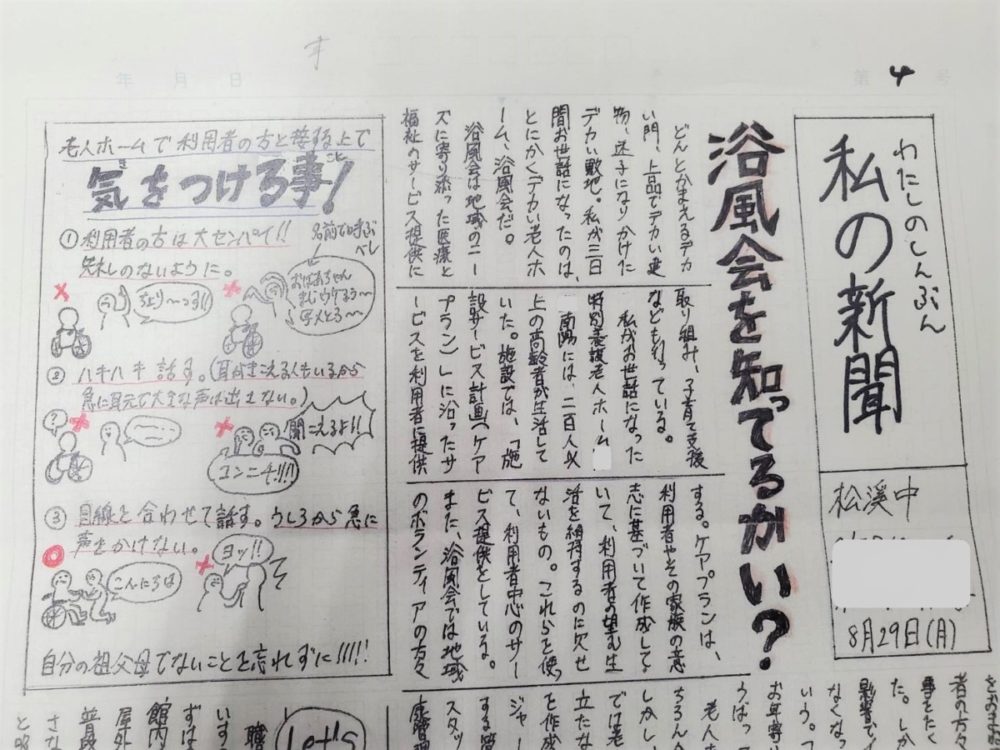 年 月 日
第 4 号
わたしのしんぶん
私の新聞
松溪中
8月29日(月)
浴風会を知ってるかい?
どんとかまえるデカ
い門、上品でデカい建
物、迷子になりかけた
デカい敷地。私が三日
間お世話になったのは、
とにかくデカい老人ホ
ーム、浴風会だ。
浴風会は地域のニー
ズに寄り添った医療と
福祉のサービス提供に
取り組み、子育て支援
なども行っている。
私がお世話になった
特別養護老人ホーム
南陽には、二百人以
上の高齢者が生活して
いた。施設では、「施
設サービス計画(ケア
プラン)」に沿ったサ
ービスを利用者に提供
する。ケアプランは、
利用者やその家族の意
志に基づいて作成して
いて、利用者の望む生
活を維持するのに欠せ
ないもの。これらを使っ
て、利用者中心のサー
ビス提供をしている。
また、浴風会では地域
のボランティアの方々
老人ホームで利用者の方と接する上で
気をつける事!
き
こと
① 利用者の方は大センパイ!!
失礼しのないように。
名前で呼ぶ
べし
ちょり〜っす!!
おばあちゃん
まじウケるう〜
写メとろ〜
② ハキハキ話す。(耳がきこえる人もいるから
急に耳元で大きな声は出さない。)
?
聞こえるよ!!
コンニチハ!!!
③ 目線を合わせて話す。うしろから急に
声をかけない。
こんにちは
ヨッ!!
自分の祖父母でないことを忘れずに!!!!!
者の方
事をたく
た。しか
なくな
いう。
お年寄
うばっ
老人
ちろん
しかし
では老
立たな
を作成
ジャー
する
スタッ
Let's
職
いす
ずは
館内
屋外
普段
さな